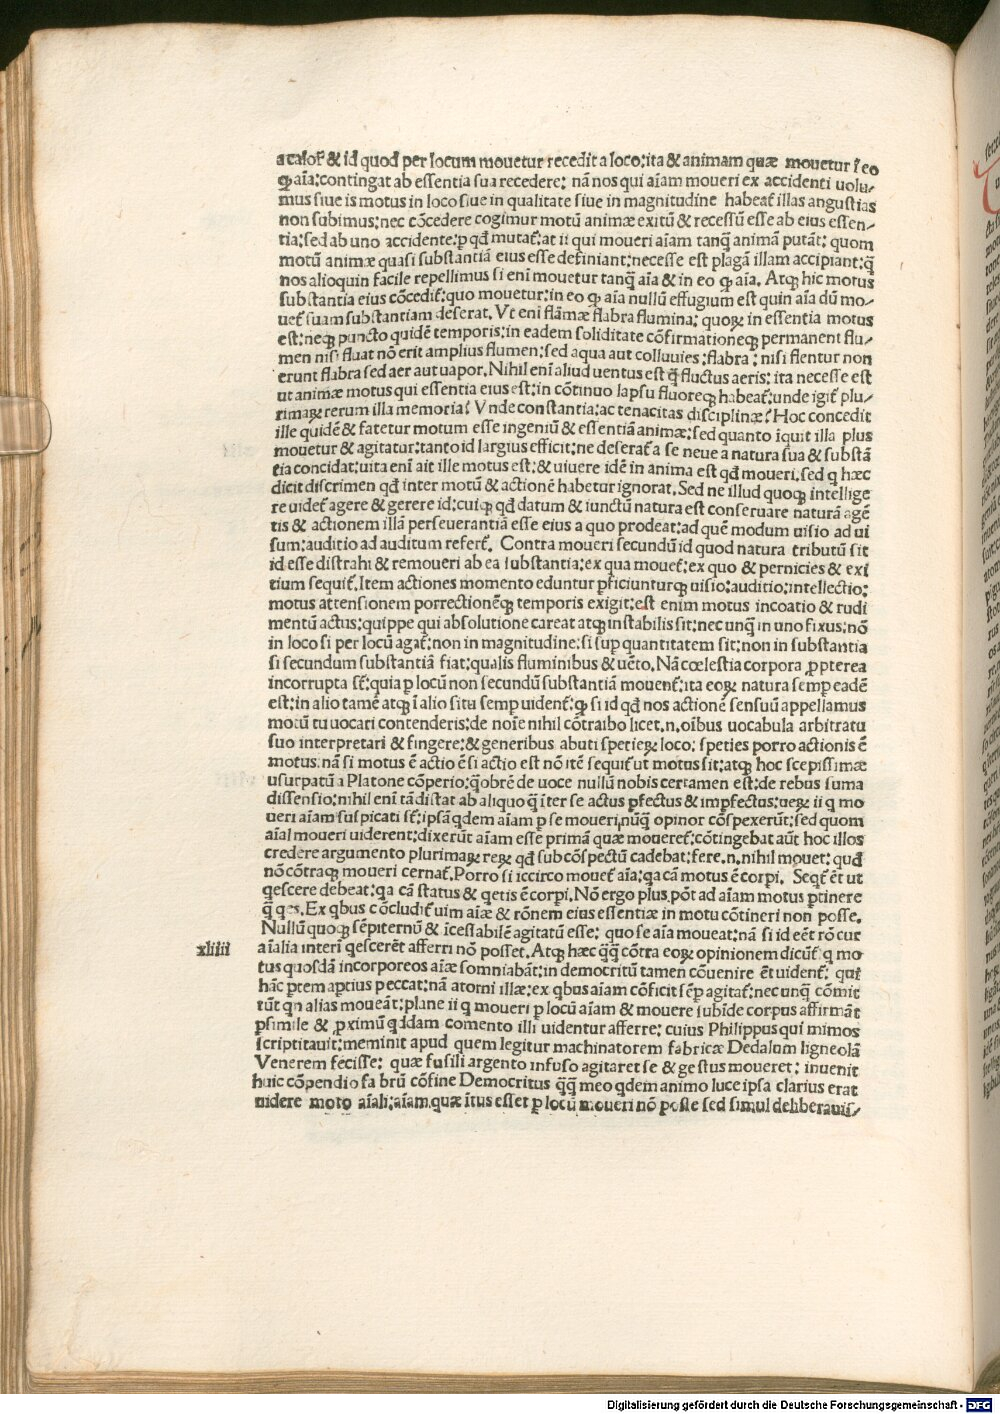 a calor̃ & id quod per locum mouetur recedit a loco: ita & animam quæ mouetur ĩ eo
ꝙ aĩa: contingat ab essentia sua recedere: nã nos qui aĩam moueri ex accidenti uolu⸗
mus siue is motus in loco siue in qualitate siue in magnitudine habeat̃ illas angustias
non subimus: nec cõcedere cogimur motũ animæ exitũ & recessũ esse ab eius essen⸗
tia: sed ab uno accidente: ꝑ qđ mutat̃: at ii qui moueri aĩam tanq̃ animã putãt: quom
motũ animæ quasi substantiã eius esse definiant: necesse est plagã illam accipiant: q̃
nos alioquin facile repellimus si enĩ mouetur tanq̃ aĩa & in eo ꝙ aĩa. Atqȝ hic motus
substantia eius cõcedit̃: quo mouetur: in eo ꝙ aĩa nullũ effugium est quin aĩa dũ mo⸗
uet̃ suam substantiam deserat. Vt enĩ flãmæ flabra flumina: quoꝝ in essentia motus
est: neqȝ puncto quidẽ temporis: in eadem soliditate cõfirmationeqȝ permanent flu⸗
men nisi fluat nõ erit amplius flumen: sed aqua aut colluuies: flabra: nisi flentur non
erunt flabra sed aer aut uapor. Nihil enĩ aliud uentus est q̃ fluctus aeris: ita necesse est
ut animæ motus qui essentia eius est: in cõtinuo lapsu fluoreqȝ habeat̃: unde igit̃ plu⸗
rimaꝝ rerum illa memoria? Vnde constantia: ac tenacitas disciplinæ? Hoc concedit
ille quidẽ & fatetur motum esse ingeniũ & essentiã animæ: sed quanto ĩquit illa plus
mouetur & agitatur: tanto id largius efficit: ne deserat̃ a se neue a natura sua & substã
tia concidat: uita enĩ ait ille motus est: & uiuere idẽ in anima est qđ moueri. sed q hæc
dicit discrimen qđ inter motũ & actionẽ habetur ignorat. Sed ne illud quoqȝ intellige
re uidet̃ agere & gerere id: cuiqȝ qđ datum & iunctũ natura est conseruare naturã agẽ
tis & actionem illã perseuerantiã esse eius a quo prodeat: ad quẽ modum uisio ad ui
sum: auditio ad auditum refert̃. Contra moueri secundũ id quod natura tributũ sit
id esse distrahi & remoueri ab ea substantia: ex qua mouet̃: ex quo & pernicies & exi
tium sequit̃. Item actiones momento eduntur ꝑficiunturqȝ uisio: auditio: intellectio:
motus attensionem porrectionẽqȝ temporis exigit: est enim motus incoatio & rudi
mentũ actus: quippe qui absolutione careat atqȝ instabilis sit: nec unq̃ in uno fixus: nõ
in loco si per locũ agat̃: non in magnitudine: si suꝑ quantitatem sit: non in substantia
si secundum substantiã fiat: qualis fluminibus & uẽto. Nã cœlestia corpora ꝓpterea
incorrupta sũt: quia ꝑ locũ non secundũ substantiã mouent̃: ita eoꝝ natura semꝑ eadẽ
est: in alio tamẽ atqȝ ĩ alio situ semꝑ uident̃: ꝙ si id qđ nos actionẽ sensuũ appellamus
motũ tu uocari contenderis: de noĩe nihil cõtraibo licet .n. oĩbus uocabula arbitratu
suo interpretari & fingere: & generibus abuti spetieꝝ loco: speties porro actionis ẽ
motus: nã si motus ẽ actio ẽ si actio est nõ itẽ sequit̃ ut motus sit: atqȝ hoc scepissimæ
usurpatũ a Platone cõperio: q̃obrẽ de uoce nullũ nobis certamen est: de rebus suma
dissensio: nihil enĩ tã distat ab aliquo q̃ ĩter se actus ꝑfectus & imꝑfectus: ueꝝ ii q mo
ueri aĩam suspicati sũt: ipsã qdem aĩam ꝑ se moueri: nũq̃ opinor cõspexerũt: sed quom
aĩal moueri uiderent: dixerũt aĩam esse primã quæ moueret̃: cõtingebat aũt hoc illos
credere argumento plurimaꝝ reꝝ qđ sub cõspectũ cadebat: fere .n. nihil mouet: quđ
nõ cõtraqȝ moueri cernat̃. Porro si iccirco mouet̃ aĩa: qa cã motus ẽ corpi. Seqt̃ ẽt ut
qescere debeat: qa cã status & qetis ẽ corpi. Nõ ergo plus põt ad aĩam motus ꝑtinere
q̃ qes. Ex qbus cõcludit̃ uim aĩæ & rõnem eius essentiæ in motu cõtineri non posse.
Nullũ quoqȝ sẽpiternũ & ĩcessabilẽ agitatũ esse: quo se aĩa moueat: nã si id eẽt rõ cur
xliiii aĩalia interĩ qescerẽt afferri nõ posset. Atqȝ hæc q̃q̃ cõtra eoꝝ opinionem dicũt̃ q mo
tus quosdã incorporeos aĩæ somniabãt: in democritũ tamen cõuenire ẽt uident̃: qui
hãc ꝑtem aptius peccat: nã atomi illæ: ex qbus aĩam cõficit sẽꝑ agitat̃: nec unq̃ cõmit
tũt qn alias moueãt: plane ii q moueri ꝑ locũ aĩam & mouere subĩde corpus affirmãt
ꝑsimile & ꝓximũ qddam comento illi uidentur afferre: cuius Philippus qui mimos
scriptitauit: meminit apud quem legitur machinatorem fabricæ Dedalum ligneolã
Venerem fecisse: quæ fusili argento infuso agitaret se & gestus moueret: inuenit
huic cõpendio fabrũ cõfine Democritus q̃q̃ meo qdem animo luce ipsa clarius erat
uidere moto aĩali: aĩam quæ ĩtus esset ꝑ locũ moueri nõ posse sed simul deliberauis⸗
Digitalisierung gefördert durch die Deutsche Forschungsgemeinschaft - DFG